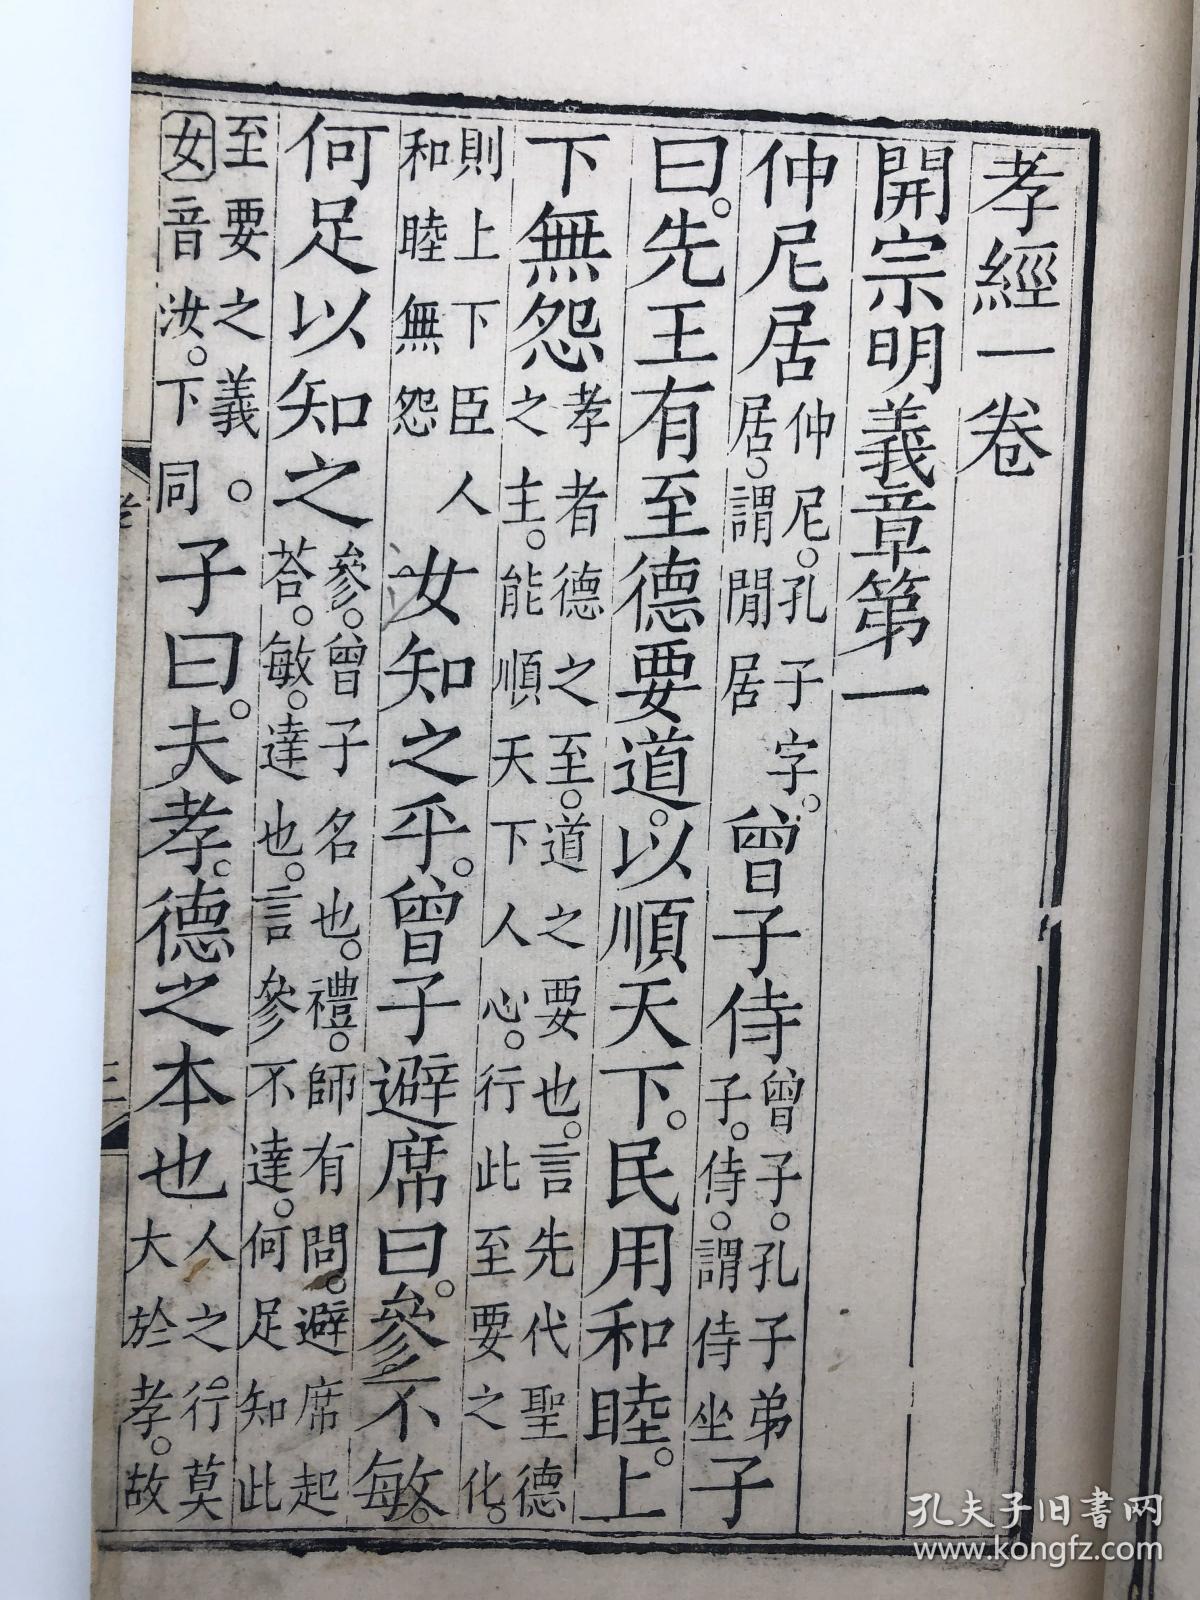 孝經一卷
開宗明義章第一
仲尼居仲尼。孔子字。居。謂閒居曾子侍曾子。孔子弟子。侍。謂侍坐子
曰。先王有至德要道。以順天下。民用和睦。上
下無怨孝者德之至。道之要也。言先代聖德之主。能順天下人心。行此至要之化。
則上下臣人和睦無怨女知之乎。曾子避席曰。參不敏。
何足以知之參。曾子名也。禮。師有問。避席起荅。敏。達也。言參不達。何足知此
至要之義。女音汝。下同子曰。夫孝。德之本也人之行。莫大於孝。故
孝
三
孔夫子旧书网
www.kongfz.com